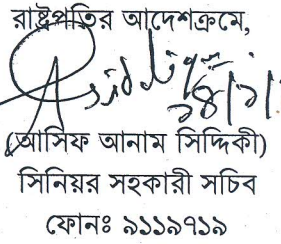 রাষ্ট্রপতির আদেশক্রমে,
(আসিফ আনাম সিদ্দিকী)
সিনিয়র সহকারী সচিব
ফোনঃ ৯১১৯৭১৯